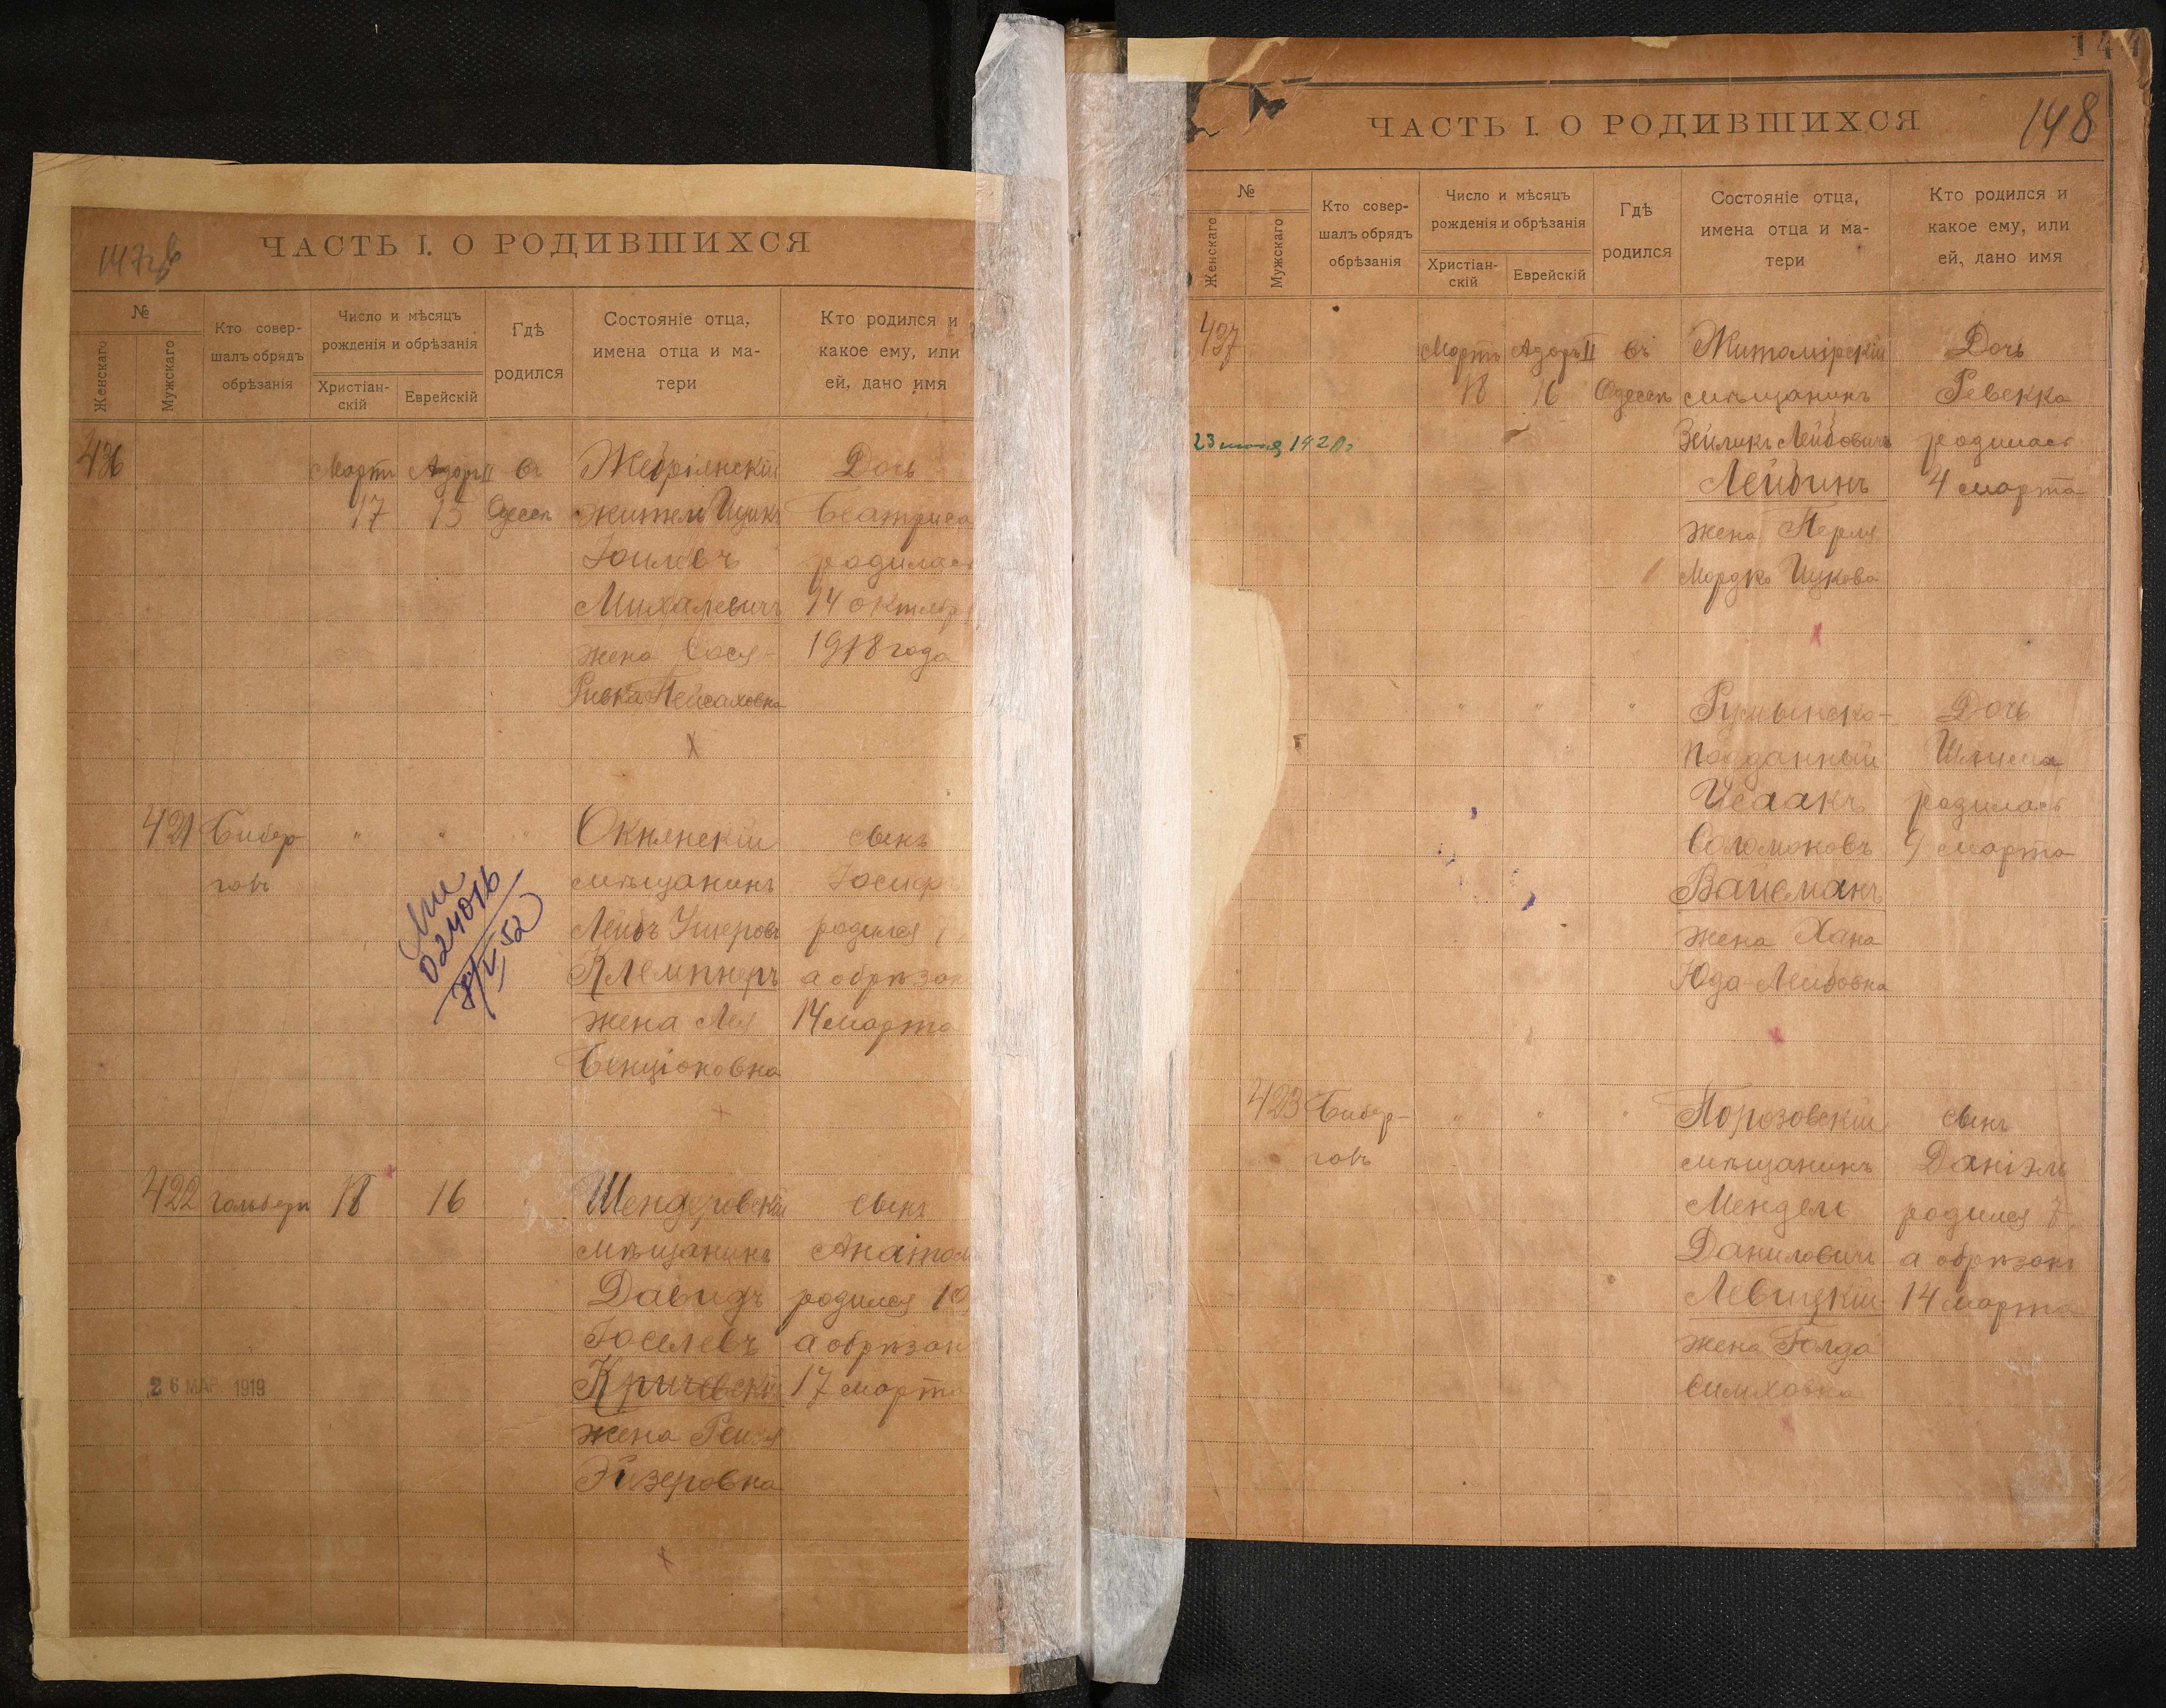 ЧАСТЬ I. О РОДИВШИХСЯ
№
Женскаго
Мужскаго
Кто совер-
шалъ обрядъ
обрѣзанія
Число и мѣсяцъ
рожденія и обрѣзанія
Христіан-
скій
Еврейскій
Гдѣ
родился
Состояніе отца,
имена отца и ма-
тери
Кто родился и
какое ему, или
ей, дано имя
436
Мартъ
17
Адаръ II
15
въ
Одессѣ
житель Ицикъ
Михалевичъ
жена Сося-
Ривка Пейсаховна
Дочь
Беатриса
родилась
14 октября
1918 года
421
Бибер
гавъ
"
"
Окнянскій
мѣщанинъ
Лейбъ Ушеровъ
Клемпнеръ
жена Лея
Бенціоновна
сынъ
Іосифъ
родился
а обрѣзан
14 марта
024016
422
18
16
мѣщанинъ
Давидъ
Іоселевъ
Кричевскій
жена Рейзя
Эйзеровна
сынъ
Анатол
родился 10
а обрѣзан
17 марта
26 МАР 1919
148
ЧАСТЬ I. О РОДИВШИХСЯ
№
Женскаго
Мужскаго
Кто совер-
шалъ обрядъ
обрѣзанія
Число и мѣсяцъ
рожденія и обрѣзанія
Христіан-
скій
Еврейскій
Гдѣ
родился
Состояніе отца,
имена отца и ма-
тери
Кто родился и
какое ему, или
ей, дано имя
437
Мартъ
18
Адаръ II
16
въ
Одессѣ
Житомірскій
мѣщанинъ
Зейликъ Лейбовичъ
Лейбинъ
жена Перля
Мордко Ицкова
Дочь
Ревекка
родилась
4 марта
"
"
"
Румынско-
подданный
Исаакъ
Соломоновъ
Вайсманъ
жена Хана
Юда Лейбовна
Дочь
родилась
9 марта
423
Бибер-
гавъ
"
"
"
Порозовскій
мѣщанинъ
Мендель
Даниловичъ
Левицкій
жена Голда
Симховна
сынъ
Даніэль
родился 7
а обрѣзанъ
14 марта